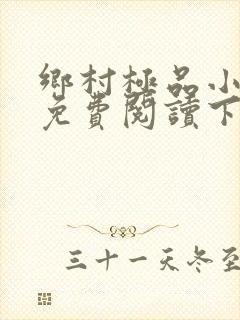 鄉村極品小
免費閱讀下
三十一天冬至